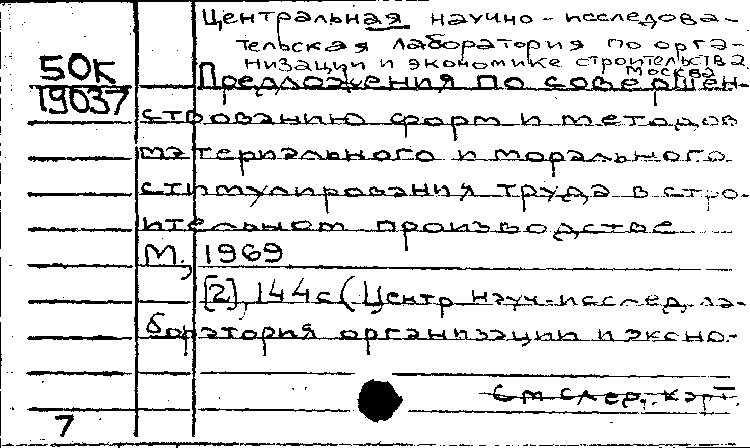 Центральная научно-исследова-
тельская лаборатория по орга-
низации и экономике строительства.
Москва
50К
19037
Предложения по совершен-
ствованию форм и методов
материального и морального
стимулирования труда в стро-
ительном производстве
М., 1969
[2], 144 с (Центр науч.-исслед. ла-
боратория организации и эконо-
См след. карт.
7